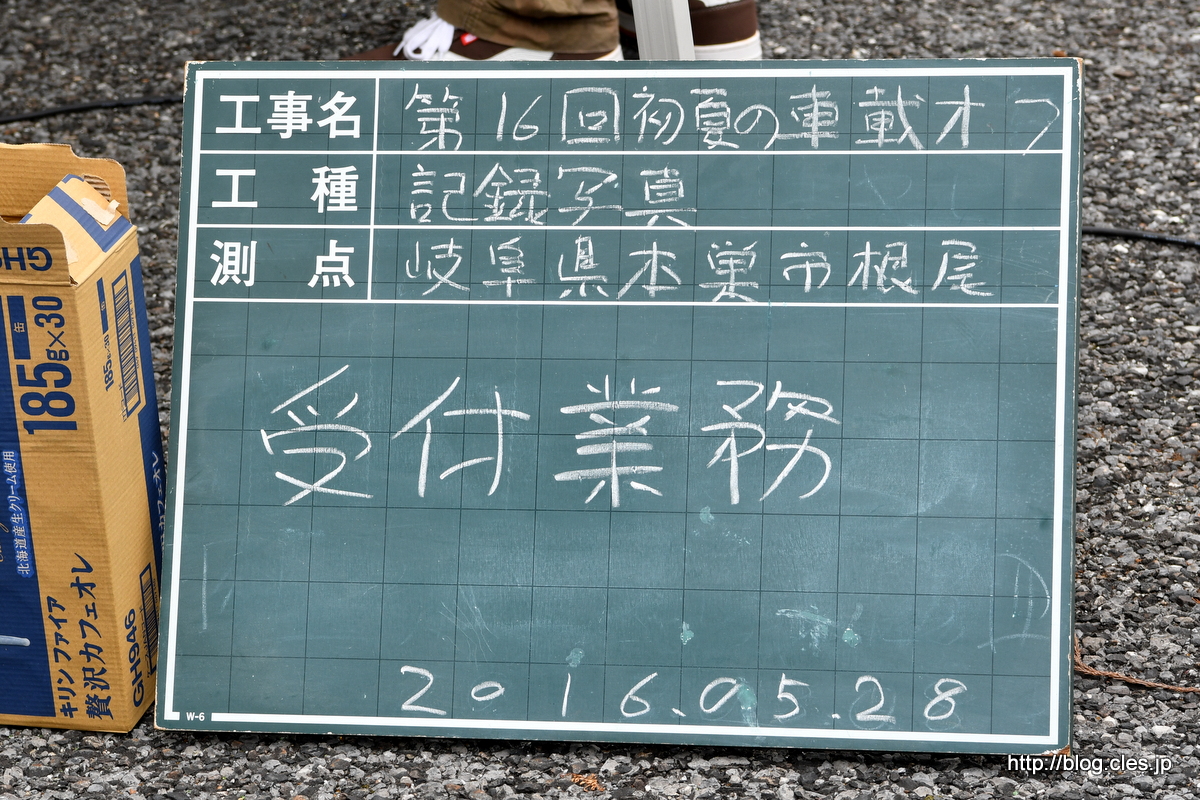 工事名 第16回初夏の車載オフ
工種 記録写真
測点 岐阜県本巣市根尾
受付業務
2016.05.28
W-6
185g×30
缶
185g×30
北海道産生クリーム使用
キリン ファイア
贅沢カフェオレ
GH946
http://blog.cles.jp